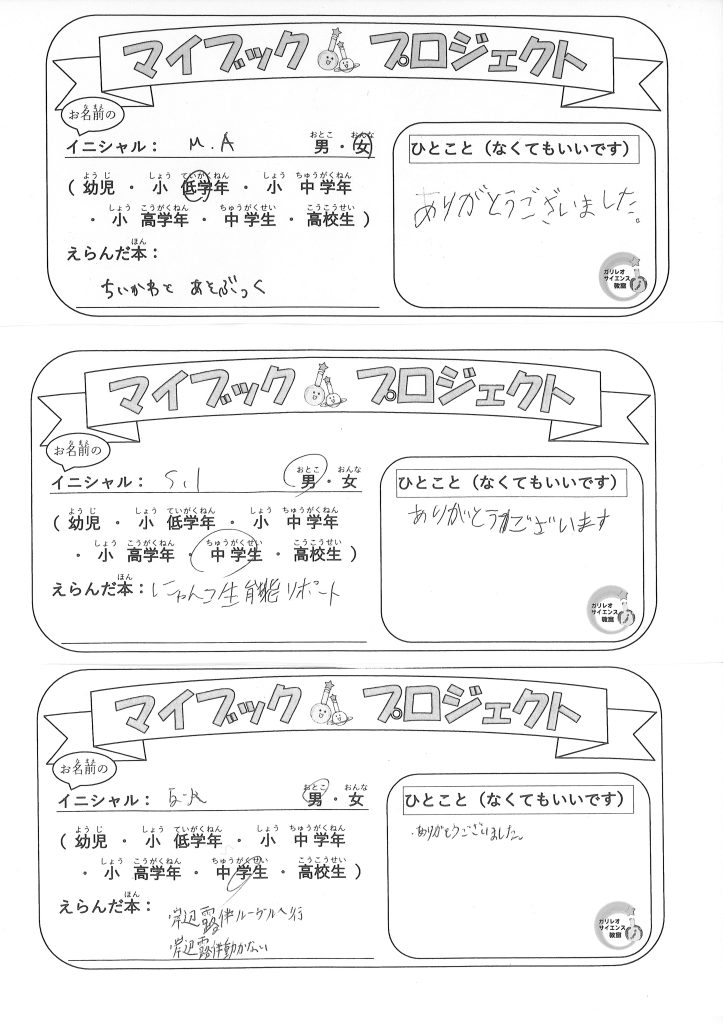 マイブック プロジェクト
お名前の
イニシャル： M.A 男・女
ひとこと（なくてもいいです）
（ 幼児 ・ 小 低学年 ・ 小 中学年
・ 小 高学年 ・ 中学生 ・ 高校生 ）
ありがとうございました。
えらんだ本：
ちいかわと あそぶっく
ガリレオ
サイエンス
教室
マイブック プロジェクト
お名前の
イニシャル： S.I 男・女
ひとこと（なくてもいいです）
（ 幼児 ・ 小 低学年 ・ 小 中学年
・ 小 高学年 ・ 中学生 ・ 高校生 ）
ありがとうございます
えらんだ本：にゃんコ生態リポート
ガリレオ
サイエンス
教室
マイブック プロジェクト
お名前の
イニシャル： 男・女
ひとこと（なくてもいいです）
（ 幼児 ・ 小 低学年 ・ 小 中学年
・ 小 高学年 ・ 中学生 ・ 高校生 ）
ありがとうございました。
えらんだ本：
岸辺露伴ルーヴルへ行
岸辺露伴動かない
ガリレオ
サイエンス
教室